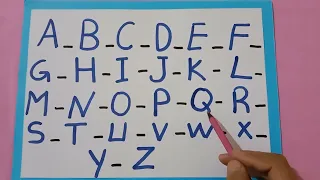 A_B_C_D_E_F_
G_H_I_J_K_L_
M_N_O_P_Q_R_
S_T_U_V_W_X_
Y_Z